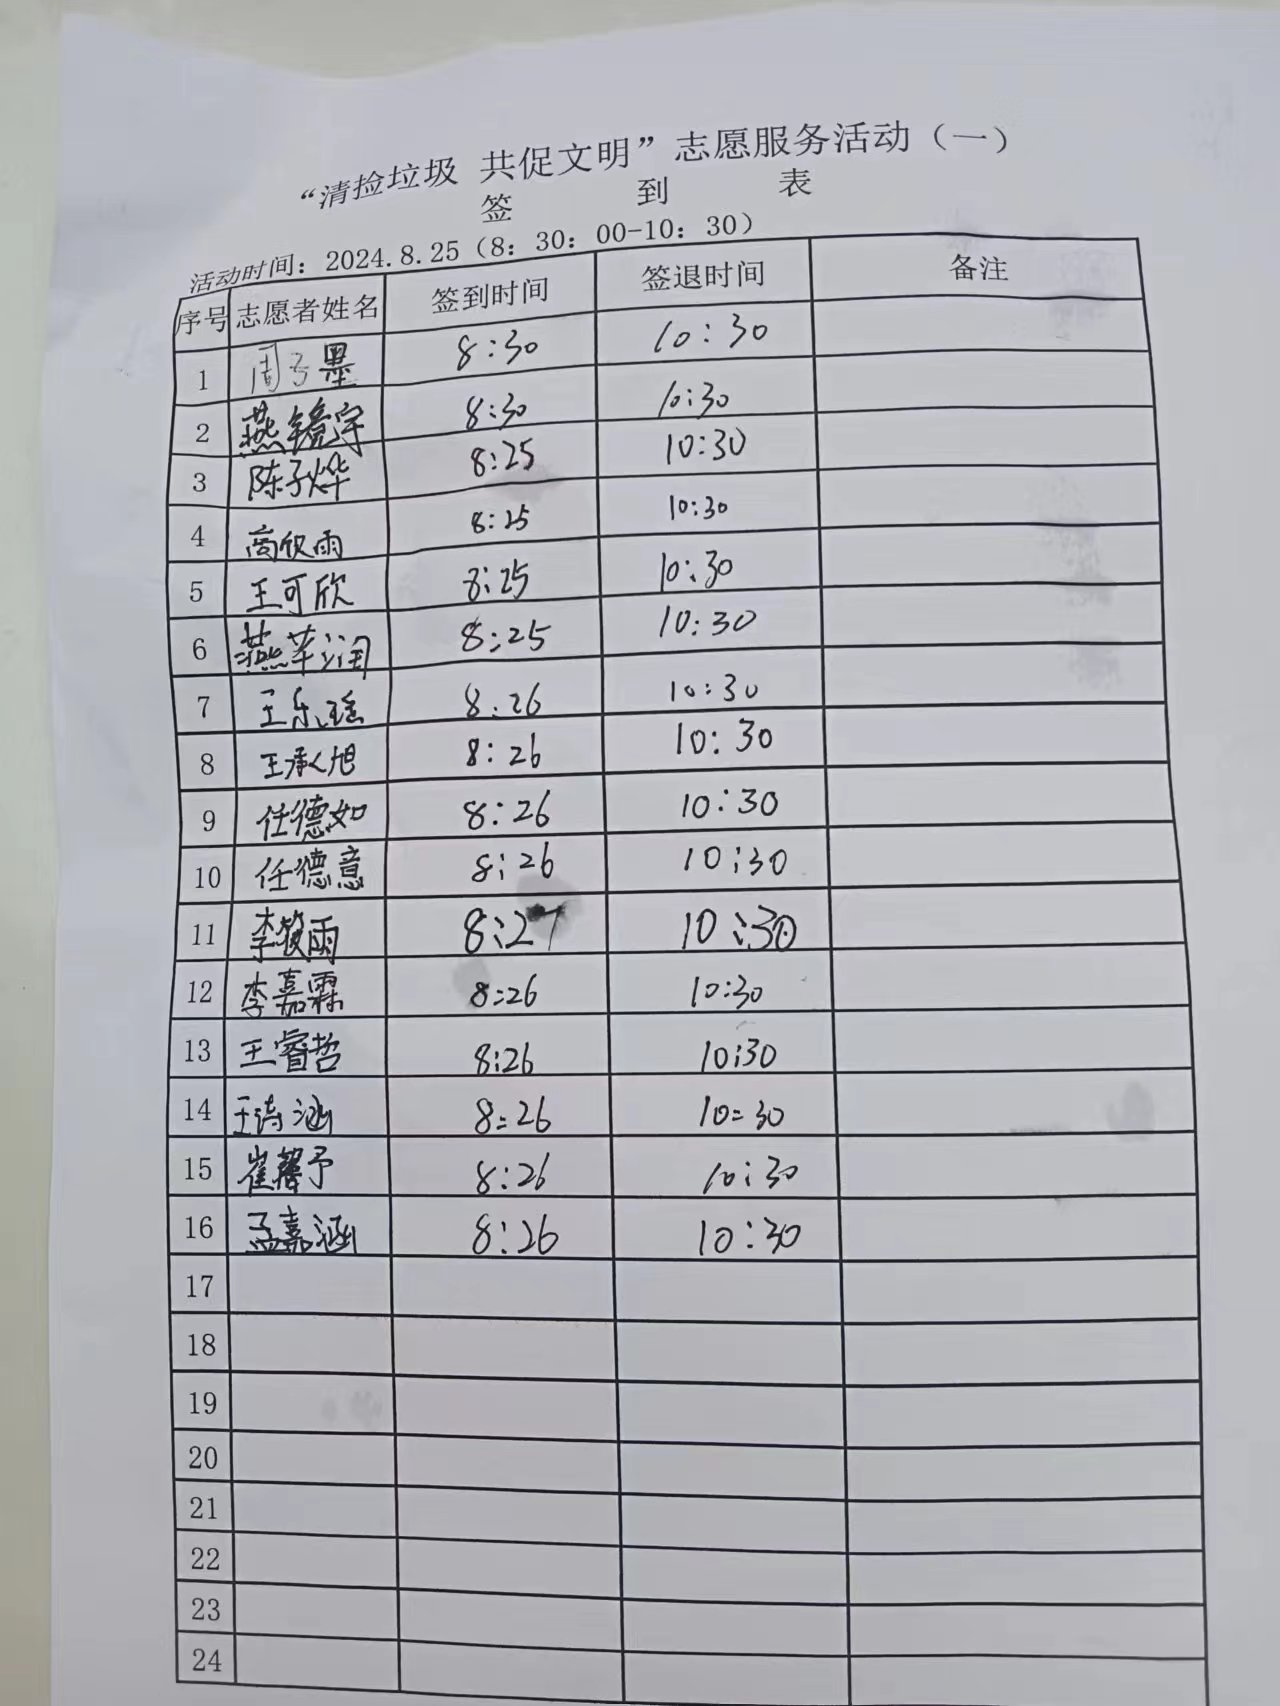 “清捡垃圾 共促文明”志愿服务活动（一）
签 到 表
活动时间：2024.8.25（8：30：00-10：30）
序号 志愿者姓名 签到时间 签退时间 备注
1 周子墨 8:30 10:30
2 燕镜宇 8:30 10:30
3 陈子烨 8:25 10:30
4 高欣雨 8:25 10:30
5 王可欣 8:25 10:30
6 燕苹润 8:25 10:30
7 王乐瑶 8:26 10:30
8 王承旭 8:26 10:30
9 任德如 8:26 10:30
10 任德意 8:26 10:30
11 李筱雨 8:27 10:30
12 李嘉霖 8:26 10:30
13 王睿哲 8:26 10:30
14 王诗涵 8:26 10:30
15 崔馨予 8:26 10:30
16 孟嘉涵 8:26 10:30
17
18
19
20
21
22
23
24